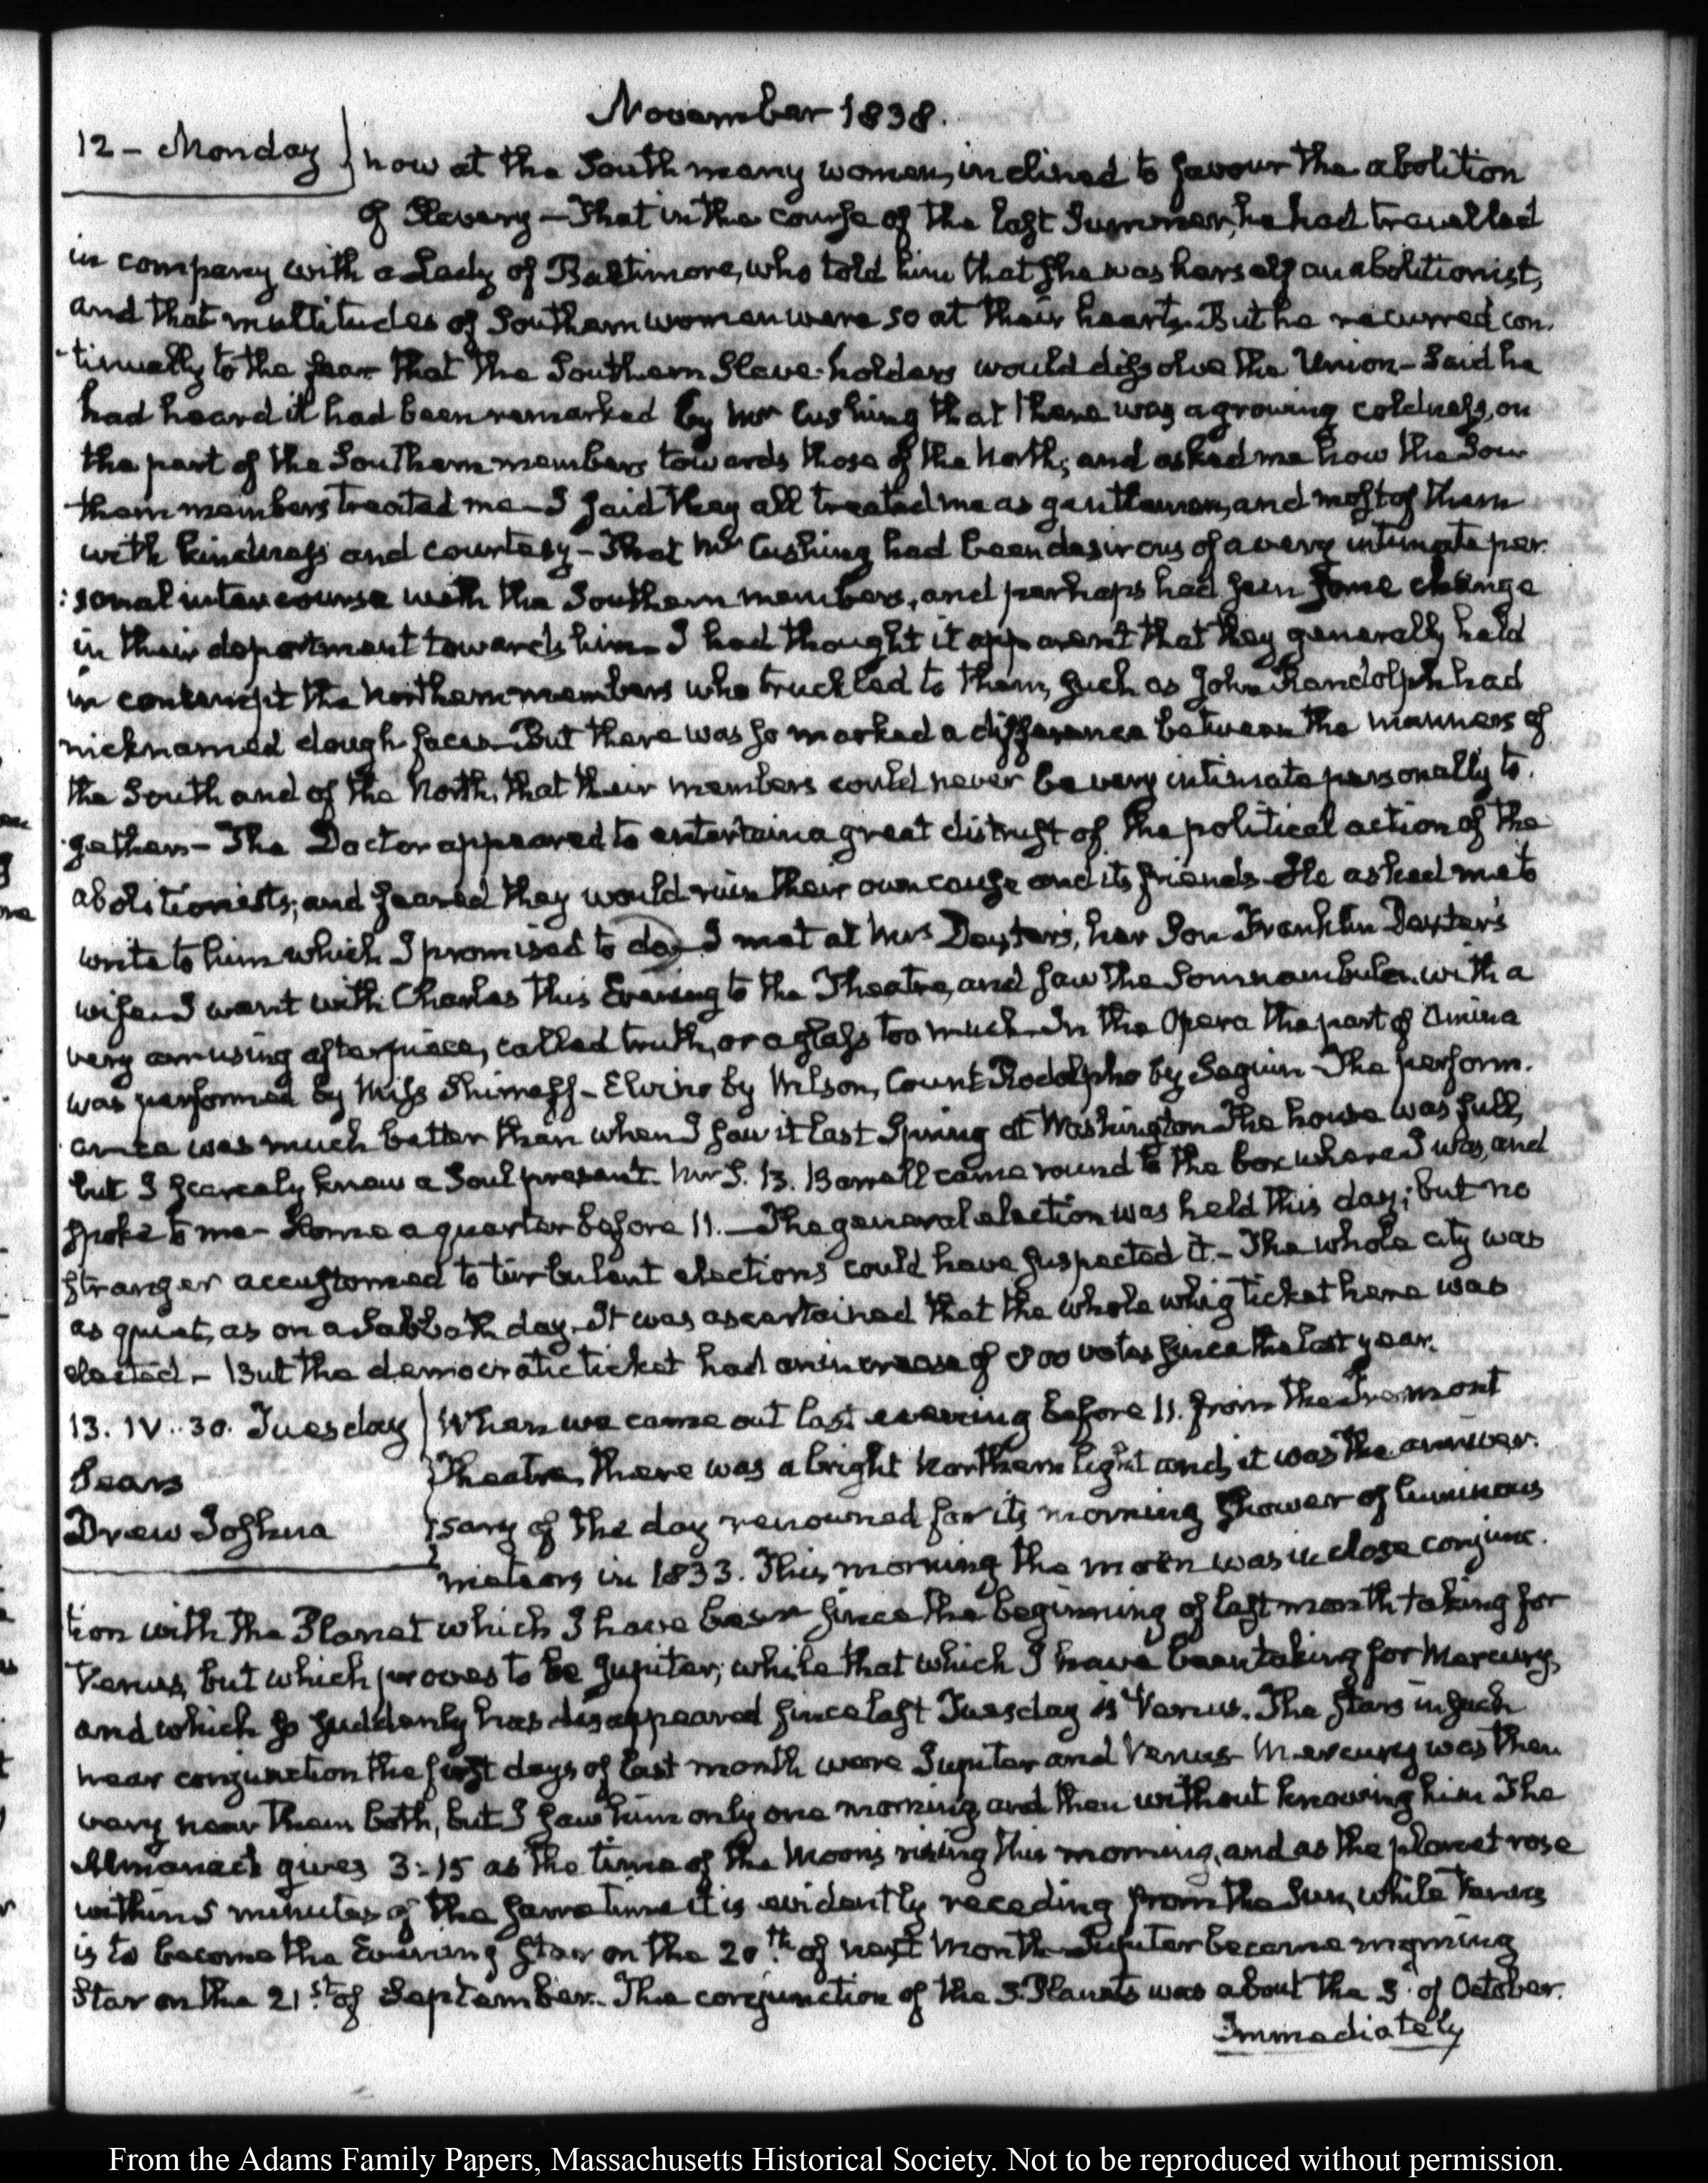 November 1838.
12 - Monday
now at the South many women, inclined to favour the abolition
of Slavery - That in the course of the last Summer, he had travelled
in company with a Lady of Baltimore, who told him that she was herself an abolitionist,
and that multitudes of Southern women were so at their hearts. But he recurred con-
tinually to the fear that the Southern Slave-holders would dissolve the Union - Said he
had heard it had been remarked by Mr Cushing that there was a growing coldness, on
the part of the Southern members towards those of the North; and asked me how the Sou
thern members treated me - I said they all treated me as gentlemen, and most of them
with kindness and courtesy - That Mr Cushing had been desirous of a very intimate per-
:sonal intercourse with the Southern members, and perhaps had seen some change
in their deportment towards him - I had thought it apparent that they generally held
in contempt the Northern members who truckled to them, such as John Randolph had
nicknamed dough faces - But there was so marked a difference between the manners of
the South and of the North, that their members could never be very intimate personally to-
gether - The Doctor appeared to entertain a great distrust of the political action of the
abolitionists; and feared they would ruin their own cause and its friends - He asked me to
write to him which I promised to do - I met at Mrs Dexter's, her Son Franklin Dexter's
wife - I went with Charles this Evening to the Theatre, and saw the Somnambula with a
very amusing afterpiece, called truth, or a glass too much - In the Opera the part of Amina
was performed by Miss Shirreff - Elvino by Wilson, Count Rodolpho by Seguin - The perform-
ance was much better than when I saw it last Spring at Washington - The house was full,
but I scarcely knew a Soul present - Mr S. B. Barrell came round to the box where I was, and
spoke to me - Home a quarter before 11. - The general election was held this day; but no
stranger accustomed to turbulent elections could have suspected it. - The whole city was
as quiet, as on a Sabbath day - It was ascertained that the whole whig ticket here was
elected. - But the democratic ticket had an increase of 800 votes since the last year.
13. IV. 30. Tuesday
Sears
Drew Joshua
When we came out last evening before 11. from the Tremont
Theatre, there was a bright Northern light and it was the anniver-
sary of the day renowned for its morning shower of luminous
meteors in 1833. This morning the moon was in close conjunc-
tion with the Planet which I have been since the beginning of last month taking for
Venus, but which proves to be Jupiter; while that which I have been taking for Mercury,
and which so suddenly has disappeared since last Tuesday is Venus. The stars in such
near conjunction the first days of last month were Jupiter and Venus - Mercury was then
very near them both, but I saw him only one morning, and then without knowing him The
Almanack gives 3:15 as the time of the Moon's rising this morning, and as the planet rose
within 5 minutes of the same time it is evidently receding from the Sun, while Venus
is to become the Evening Star on the 20th. of next Month - Jupiter became morning
Star on the 21st. of September. The conjunction of the 3 Planets was about the 3. of October.
Immediately
From the Adams Family Papers, Massachusetts Historical Society. Not to be reproduced without permission.